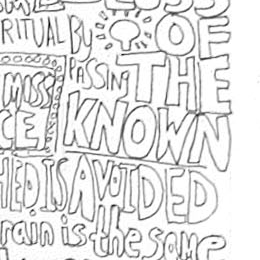 LOSS
RITUAL BY OF
PASSIN THE
MOSS
CE KNOWN
HED IS AVOIDED
rain is the same